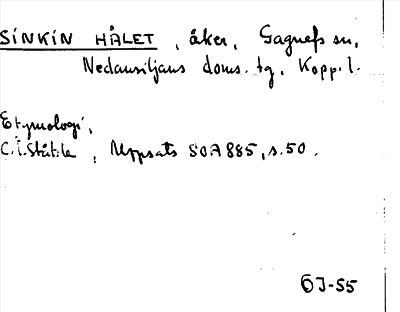 SINKIN HÅLET, åker, Gagnefs sn,
Nedansiljans doms. tg, Kopp. l.
Etymologi,
C.I. Ståhle, Uppsats SOA 885, s. 50.
ÖJ-55